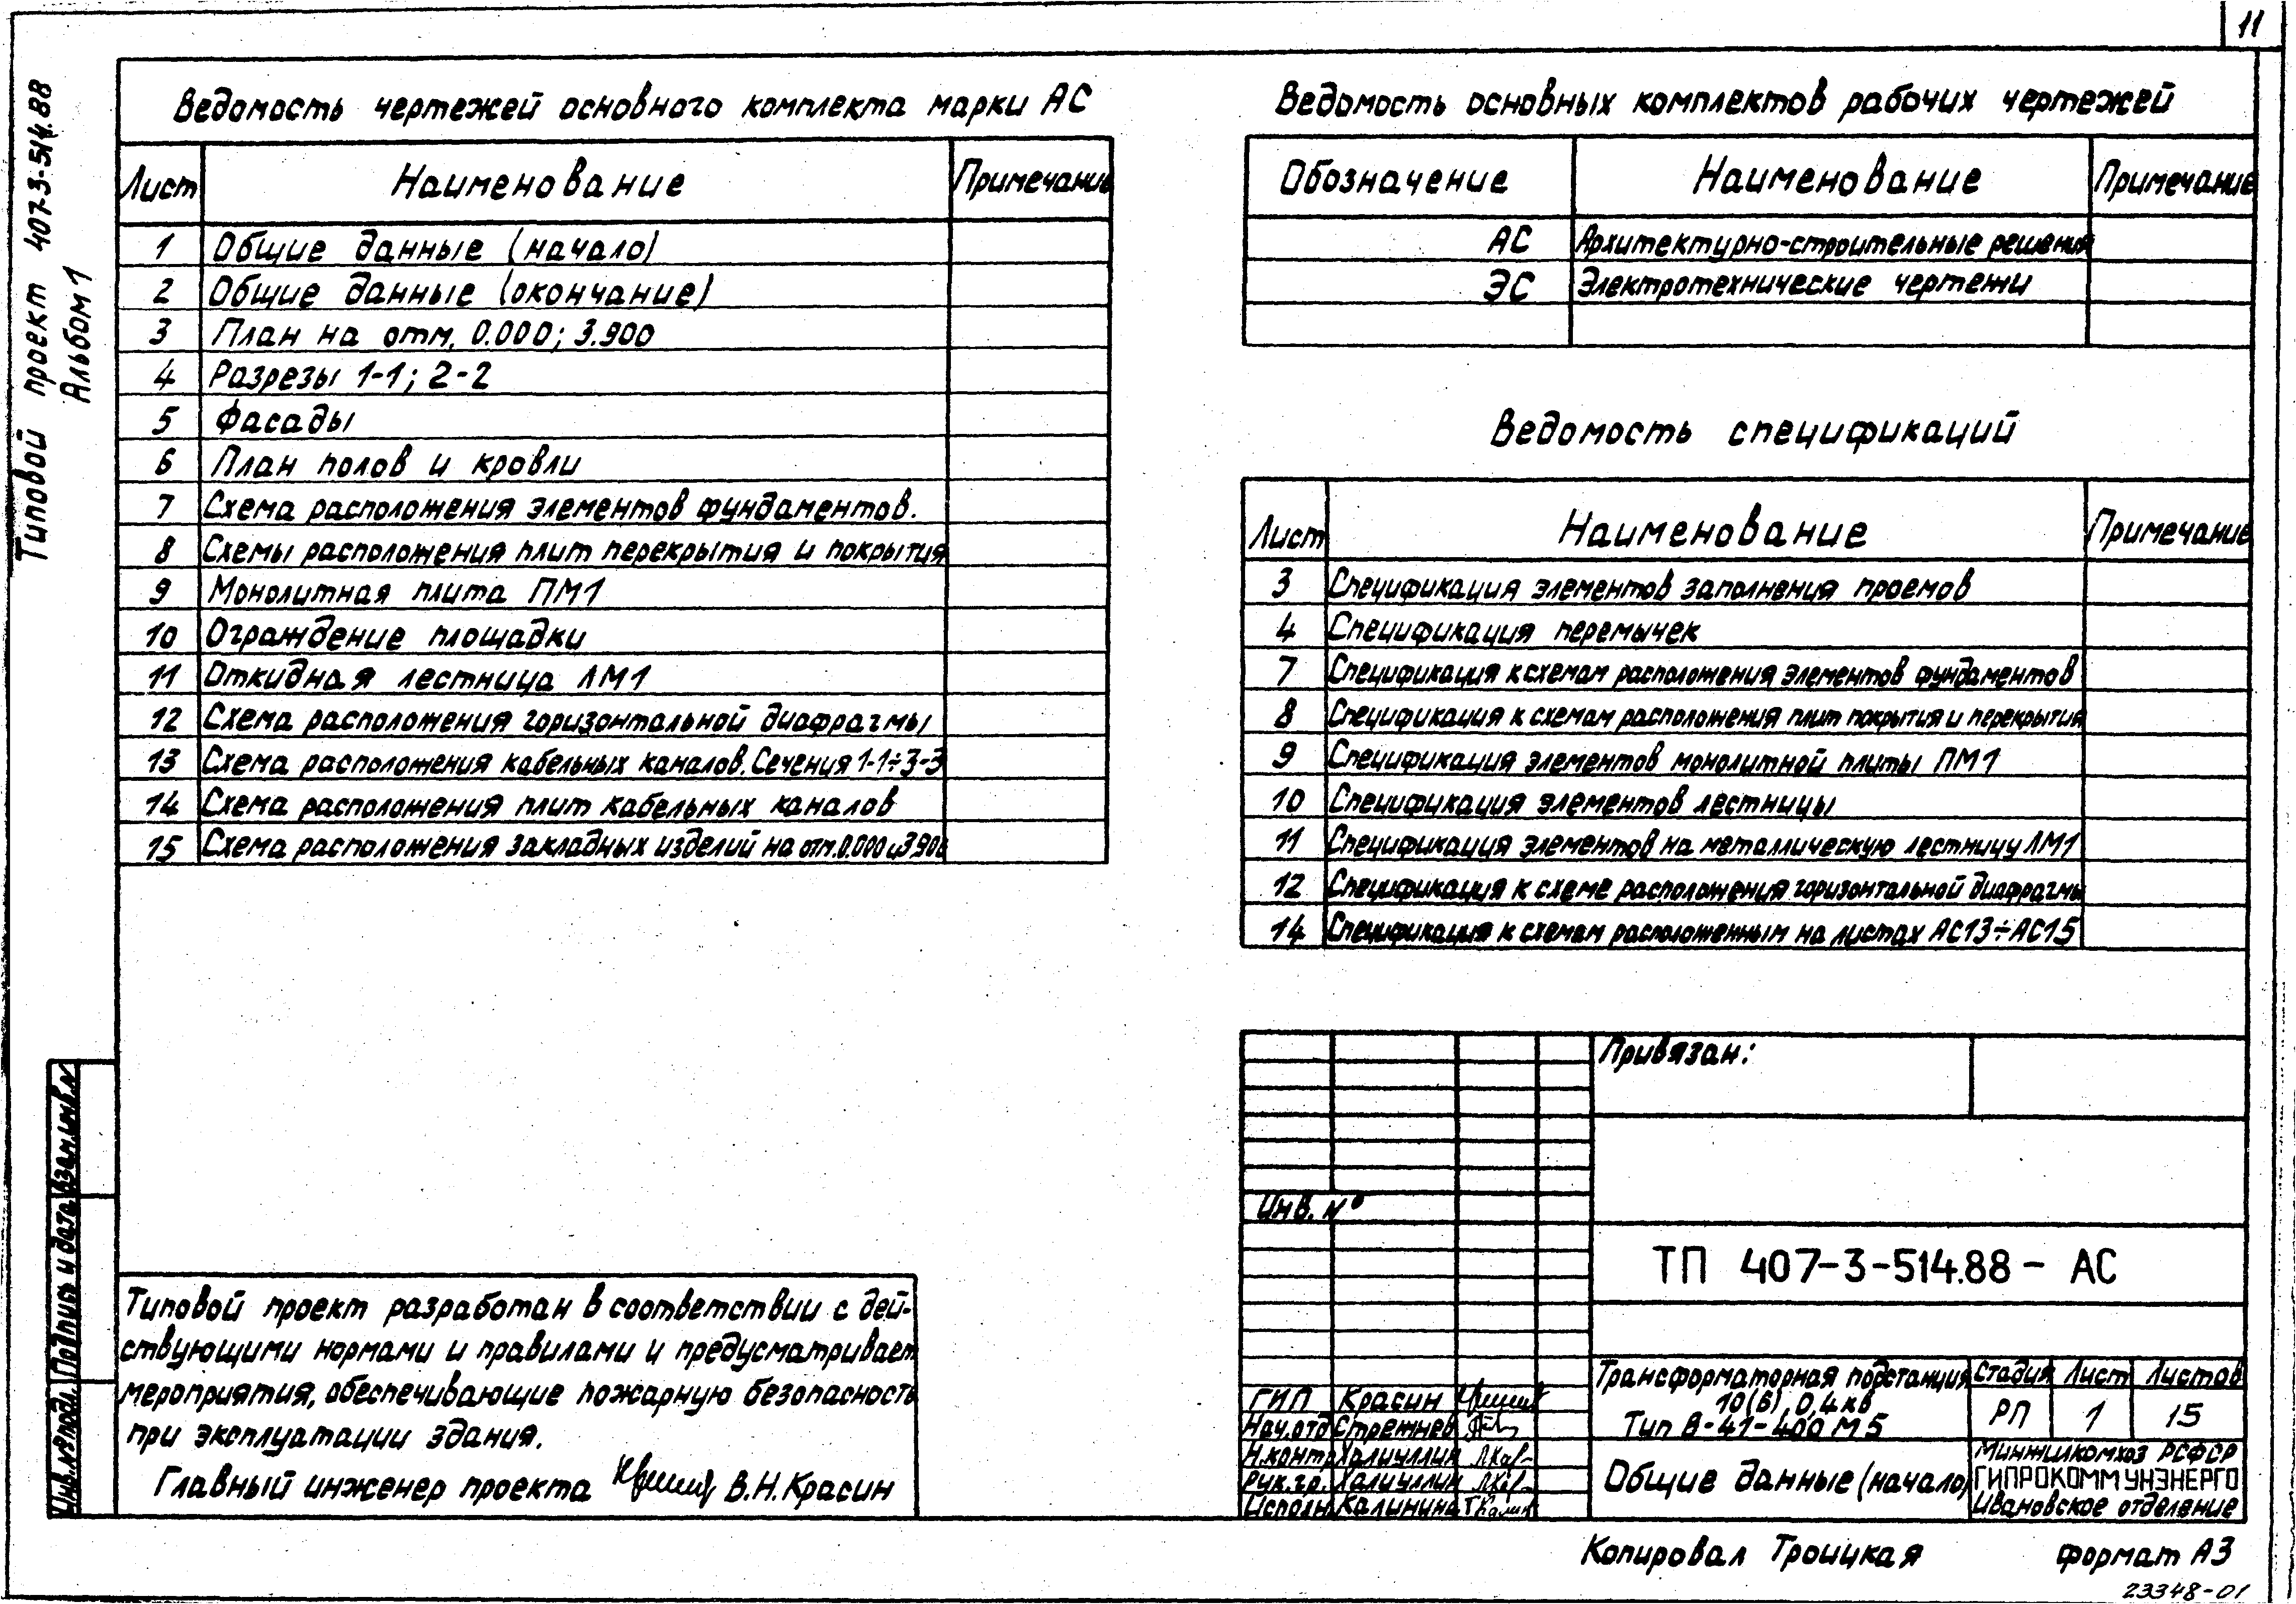 11
Типовой проект 407-3-514.88
Альбом 1
Ведомость чертежей основного комплекта марки АС
Лист Наименование Примечание
1 Общие данные (начало)
2 Общие данные (окончание)
3 План на отм. 0.000; 3.900
4 Разрезы 1-1; 2-2
5 Фасады
6 План полов и кровли
7 Схема расположения элементов фундаментов.
8 Схемы расположения плит перекрытия и покрытия
9 Монолитная плита ПМ1
10 Ограждение площадки
11 Откидная лестница ЛМ1
12 Схема расположения горизонтальной диафрагмы
13 Схема расположения кабельных каналов. Сечения 1-1÷3-3
14 Схема расположения плит кабельных каналов
15 Схема расположения закладных изделий на отм. 0.000 и 3.900
Ведомость основных комплектов рабочих чертежей
Обозначение Наименование Примечание
АС Архитектурно-строительные решения
ЭС Электротехнические чертежи
Ведомость спецификаций
Лист Наименование Примечание
3 Спецификация элементов заполнения проемов
4 Спецификация перемычек
7 Спецификация к схемам расположения элементов фундаментов
8 Спецификация к схемам расположения плит покрытия и перекрытия
9 Спецификация элементов монолитной плиты ПМ1
10 Спецификация элементов лестницы
11 Спецификация элементов на металлическую лестницу ЛМ1
12 Спецификация к схеме расположения горизонтальной диафрагмы
14 Спецификация к схемам расположенным на листах АС13÷АС15
Инв.№ подл. Подпись и дата Взам.инв.№
Типовой проект разработан в соответствии с дей-
ствующими нормами и правилами и предусматривает
мероприятия, обеспечивающие пожарную безопасность
при эксплуатации здания.
Главный инженер проекта В.Н.Красин
Привязан:
Инв. №
ТП 407-3-514.88 - АС
ГИП Красин
Нач.отд Стрежнев
Н.контр Халиуллин
Рук.гр. Халиуллин
Исполн. Калинина
Трансформаторная подстанция
10(6), 0,4 кв
Тип В-41-400 М5
Стадия Лист Листов
РП 1 15
Общие данные (начало)
Минжилкомхоз РСФСР
ГИПРОКОММУНЭНЕРГО
Ивановское отделение
Копировал Троицкая формат А3
23348-01